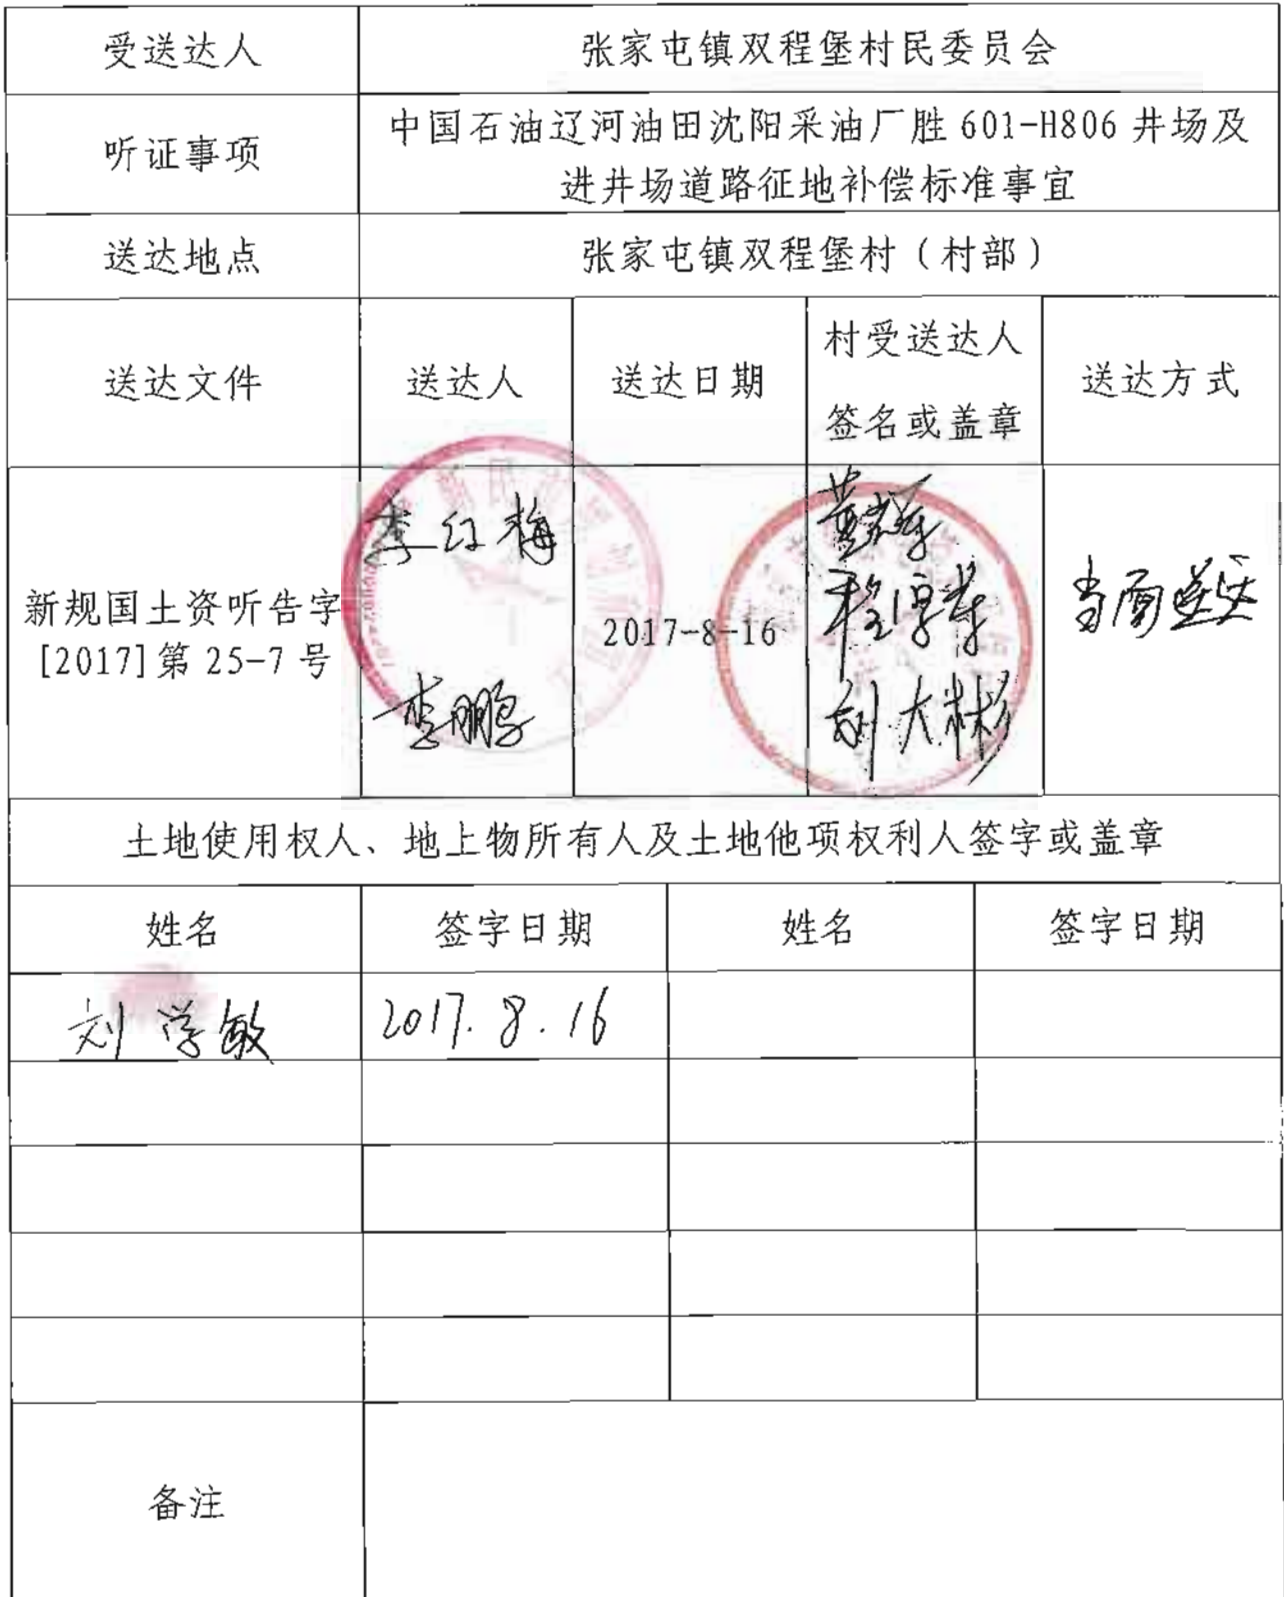 受送达人
张家屯镇双程堡村民委员会
听证事项
中国石油辽河油田沈阳采油厂胜 601-H806 井场及
进井场道路征地补偿标准事宜
送达地点
张家屯镇双程堡村（村部）
送达文件
送达人
送达日期
村受送达人
签名或盖章
送达方式
新规国土资听告字
[2017]第 25-7 号
李红梅
李鹏
2017-8-16
刘大彬
当面送达
土地使用权人、地上物所有人及土地他项权利人签字或盖章
姓名
签字日期
姓名
签字日期
刘学敏
2017.8.16
备注